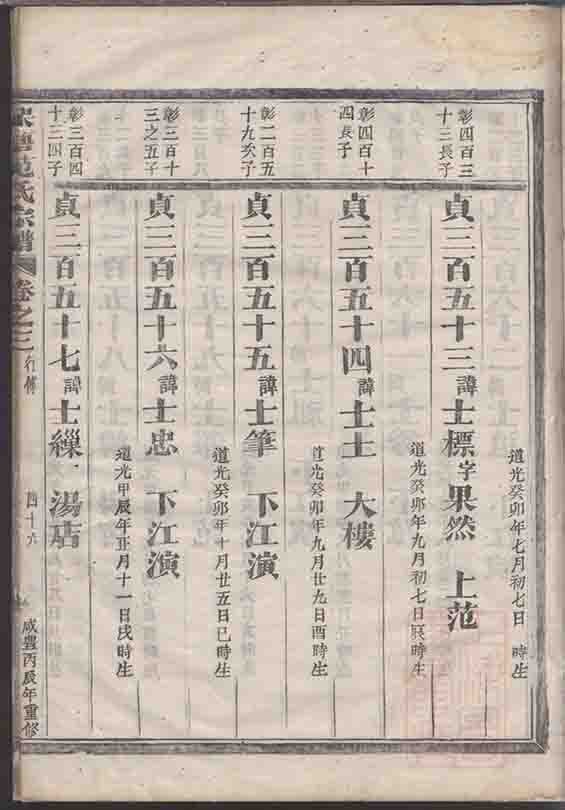 道光癸卯年七月初七日 時生
彰四百三
十三長子
貞三百五十三諱士標字果然 上范
道光癸卯年九月初七日辰時生
彰四百十
四長子
貞三百五十四諱士土 大樓
道光癸卯年九月廿九日酉時生
彰二百五
十九次子
貞三百五十五諱士筆 下江演
道光癸卯年十月廿五日巳時生
彰三百十
三之五子
貞三百五十六諱士忠 下江演
道光甲辰年正月十一日戌時生
彰三百四
十三四子
貞三百五十七諱士繅 湯店
范氏宗譜 卷之三 行傳 四十六 咸豐丙辰年重修